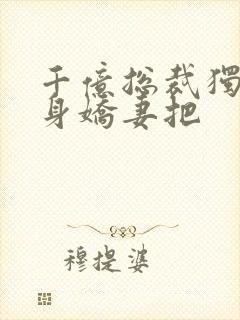 千億总裁獨
身嬌妻把
穆提婆